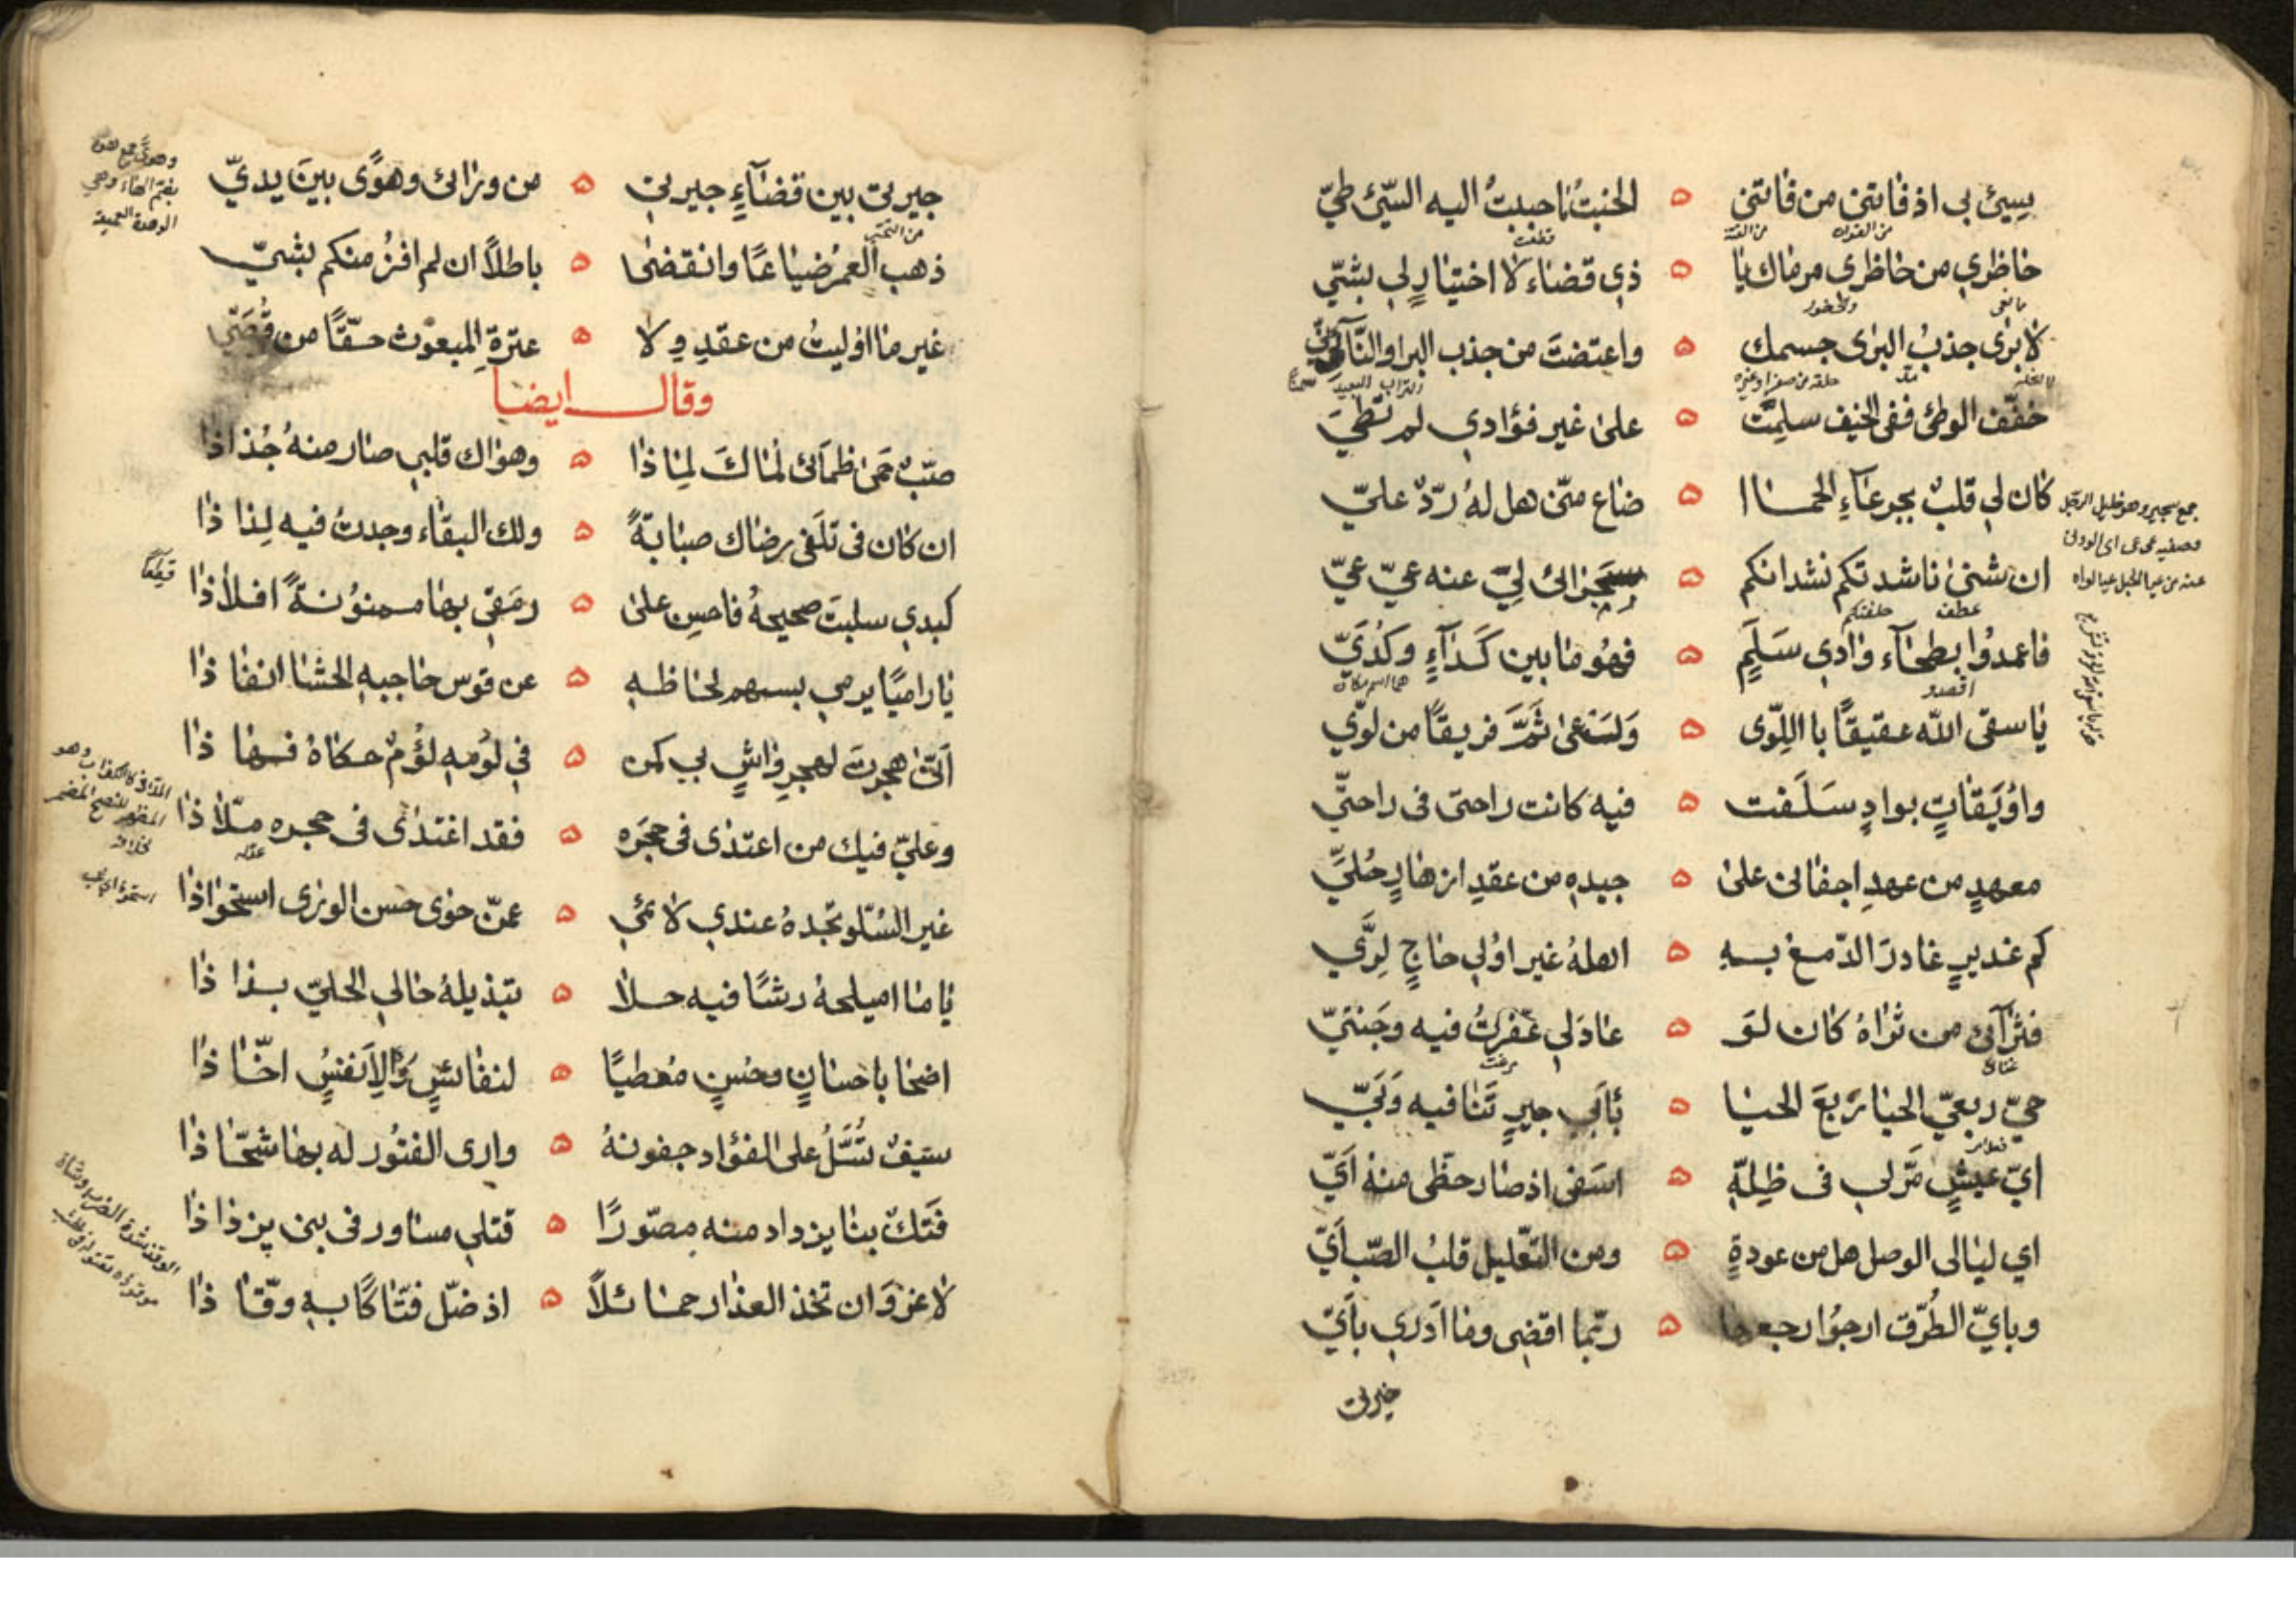 سيئ بي اذ فاتني من فاتني ه الخبتُ ما جبتُ اليه السيّئ طيّ
من الفوات من الفتنة
قطعت
خاظري من خاظري مرماك يا ه ذي قضاء لا اختيار لي بشيّ
مانعى والخضور
لا برى جذبُ البرى جسمك ه واعتضتَ من جذب البرا والنّآئي
حلقة من صفر او غيره
التراب البعيد
خفّف الوطئ ففي الخيف سلمتَ ه على غير فؤادي لم تطيَ
كان لي قلبٌ بجرعآءِ الحما ه ضاع منّي هل لهُ ردّ عليّ
ان ثنى ناشدتكم نشدانكم ه سجرائ ليّ عنه عيّ عيّ
عطف حلفتكم
فاعمدوا بطحآء وادي سَلَمٍ ه فهو ما بين كَدَآءٍ وكُدَيّ
اقصدو
هما اسم مكان
يا سقى الله عقيقًا باللّوى ه وَرَعى ثَمَّ فريقًا من لويّ
واُوَيقاتٍ بوادٍ سَلَفت ه فيه كانت راحتي في راحتيّ
معهدٍ من عهدِ اجفاني على ه جيدِهِ من عقدِ ازهارٍ حُليَّ
كم غديرٍ غادرَ الدّمع بهِ ه اهلهُ غير اُولي حاجٍ لِرَيّ
فثرآئي من ثراهُ كان لو ه عاد لي عَفّرتُ فيه وجنتيّ
مرغت
حيّ ربعيّ الحيا ربعَ الحيا ه بأبي جيرتنا فيه وَبَيّ
ايّ عيشٍ مَرّ لي في ظِلِهِ ه اسَفي اذ صار حظّي منهُ اَيّ
اي ليالي الوصل هل من عودةٍ ه ومن التّعليل قلبُ الصّب اَيّ
وبايّ الطُرق ارجوُ ارجعها ه ربّما اقضى وما ادري بأيّ
خيرتى
جيرتى بين قضآءِ جيرتي ه من ورائ وهوًى بينَ يديّ
ذهب العمرُ ضياعًا وانقضى ه باطلاً ان لم افز منكم بشيّ
غير ما اوليتُ من عقدِ ولا ه عترةِ المبعوث حقًّا من قُصَيّ
وقال ايضا
صبّ حَمى ظمآئ لماكَ لماذا ه وهواك قلبي صار منهُ جُذاذا
ان كان في تلَفي رضاك صبابةً ه ولك البقاء وجدتُ فيه لذاذا
قطعًا
كبدي سلبتَ صحيحهُ فامنن على ه رمَقي بها ممنوُنةً افلاذا
يا راميًا يرمي بسهم لحاظهِ ه عن قوس حاجبهِ الحشا انفاذا
اَنّى هجرتَ لهجرِ واشٍ بي كمن ه في لَومهِ لؤمٌ حكاهُ فهاذا
وعليّ فيك من اعتدى في حِجرَه ه فقد اغتدى في حجره ملّاذا
غير السُلّو تجدهُ عندي لائمي ه عمّن حوى حسن الورى استحواذا
يا ما اميلحهُ رشًا فيه حلا ه بتبذيلهُ حالي الحليّ بذاذا
اضحا باحسانٍ وحسنٍ مُعطيًا ه لنفائسٍ والِاَنفسٍ اخّاذا
سيفٌ تُسَلُّ على الفؤاد جفونهُ ه وارى الفتُور له بها شحّاذا
فَتكٌ بنا يزداد منه مصوّرًا ه قتلي مساور في بني يزداذا
لا غروَ ان تخذ العذار حمائلاً ه اذ ضلّ فتّاكًا بهِ وقّاذا